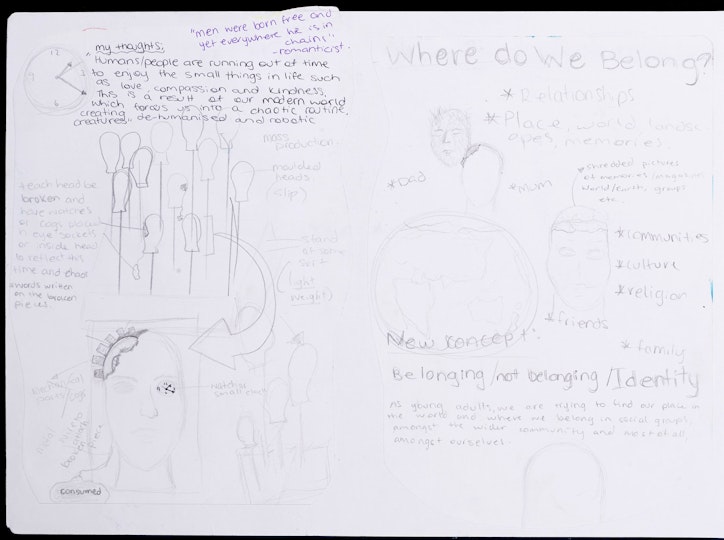 "men were born free and
yet everywhere he is in
chains"
-romanticist.
my thoughts:
Humans/people are running out of time
to enjoy the small things in life such
as love, compassion and kindness.
This is a result of our modern world
which forces us into a chaotic routine,
creating
creatures. de-humanised and robotic
12
3
6
9
mass
production.
moulded
heads
(slip)
each head be
broken and
have watches
or cogs placed
in eye sockets
or inside head
to reflect this
time and chaos
words written
on the broken
pieces.
stand
of some
sort
(light
weight)
mechanical
parts/cogs
metal
piece
broken
watch
small
consumed
Where do We Belong?
* Relationships
* Place, world, landsc
apes, memories.
* Dad
* Mum
* shredded pictures
of memories/images in
world/earth, groups
etc.
* communities
* culture
* religion
* friends
* family
New concept:
Belonging/not belonging/Identity
As young adults, we are trying to find our place in
the world and where we belong in social groups,
amongst the wider community and most of all
amongst ourselves.